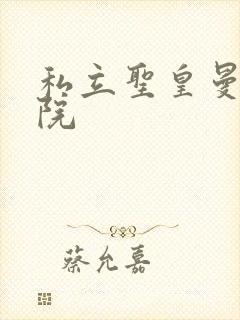 私立聖皇曼
院
蔡允嘉